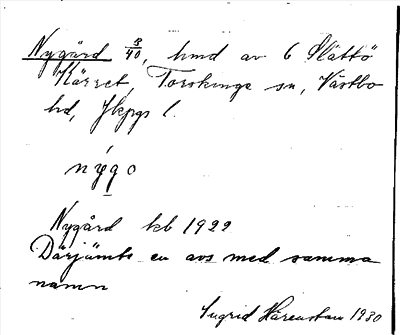 Nygård 3/40, hmd av 6 Slättö
Kärret, Torskinge sn, Västbo
hd, Jkpgs l.
nygo
Nygård kb 1922
Därjämte en avs med samma
namn
Ingrid Härenstam 1930